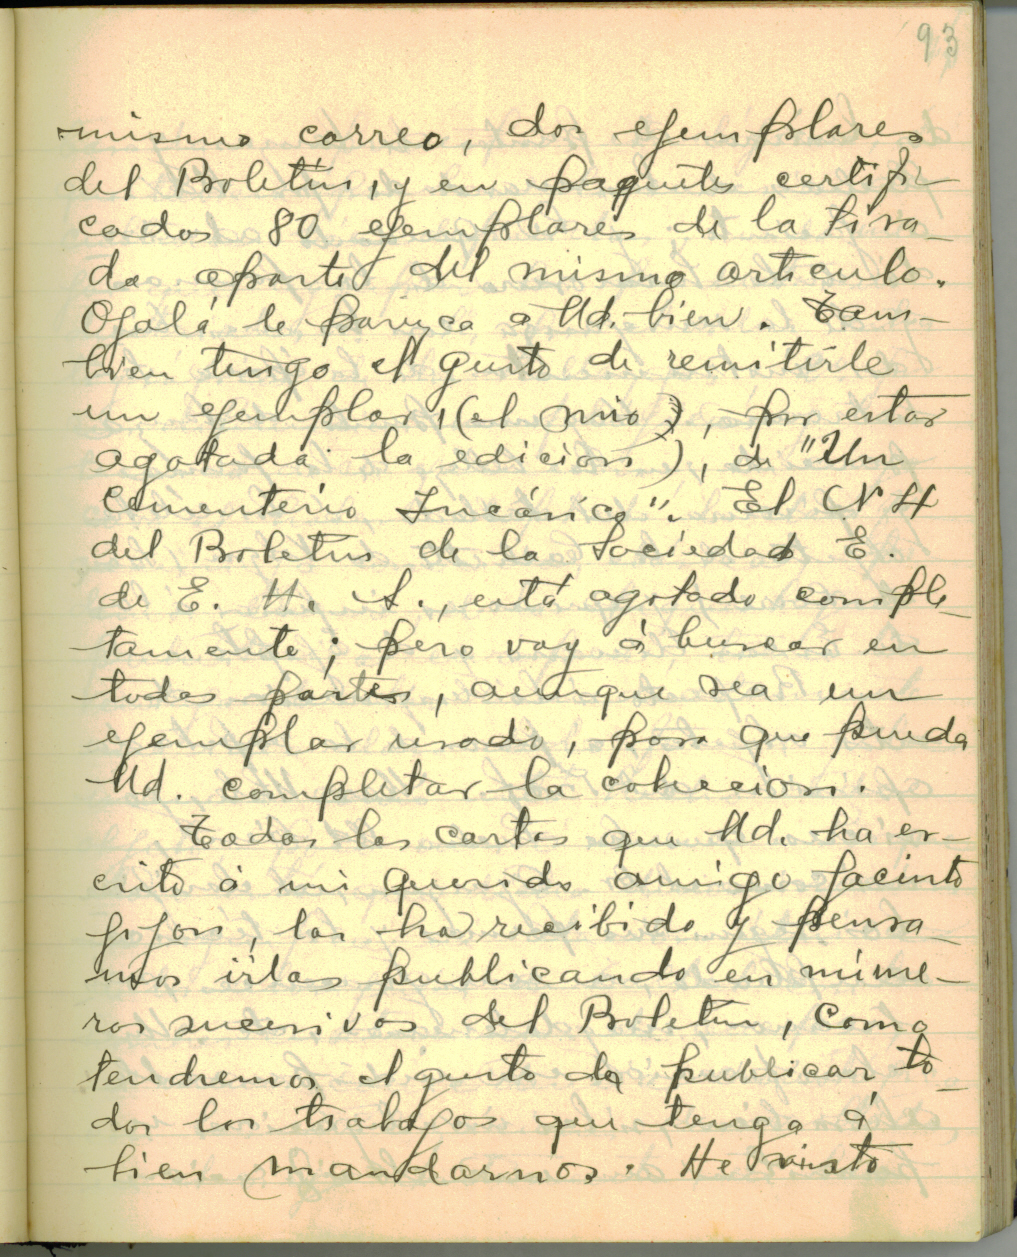 93
mismo correo, dos ejemplares
del Boletín, y en paquetes certifi-
cados 80 ejemplares de la tira-
da aparte del mismo articulo.
Ojalá le parezca a Ud. bien. Tam-
bien tengo el gusto de remitirle
un ejemplar, (el mio), por estar
agotada la edicion), de "Un
Cementerio Incásico". El Nº 4
del Boletin de la Sociedad E.
de E. H. A., está agotado comple-
tamente; pero voy á buscar en
todas partes, aunque sea un
ejemplar usado, para que pueda
Ud. completar la coleccion.
Todas las cartas que Ud. ha es-
crito á mi querido amigo Jacinto
Jijon, las ha recibido y pensa-
mos irlas publicando en núme-
ros sucesivos del Boletin, como
tendremos el gusto de publicar to-
dos los trabajos que tenga á
bien mandarnos. He visto